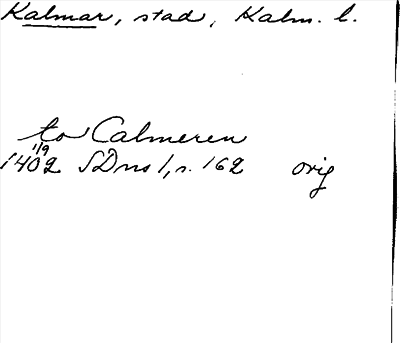 Kalmar, stad, Kalm. l.
to Calmeren
1/9
1402 SDns 1, s. 162 orig